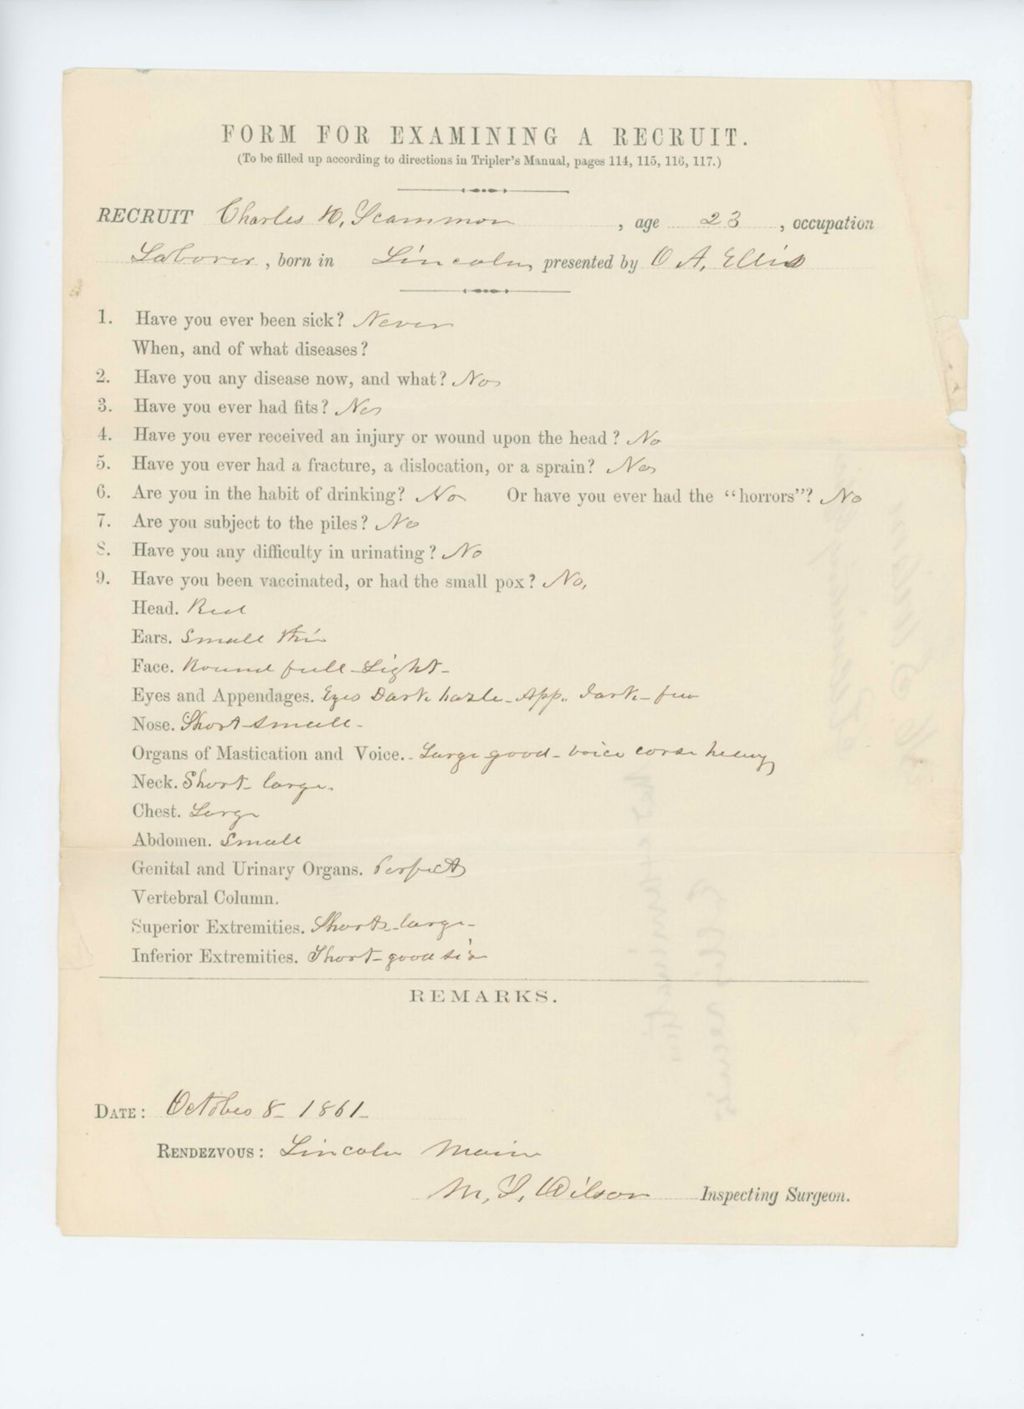 FORM FOR EXAMINING A RECRUIT.
(To be filled up according to directions in Tripler's Manual, pages 114, 115, 116, 117.)
RECRUIT Charles H. Scammon, age 23, occupation
Laborer, born in Lincoln, presented by O A. Ellis
1. Have you ever been sick? Never
When, and of what diseases?
2. Have you any disease now, and what? No
3. Have you ever had fits? No
4. Have you ever received an injury or wound upon the head? No
5. Have you ever had a fracture, a dislocation, or a sprain? No
6. Are you in the habit of drinking? No Or have you ever had the "horrors"? No
7. Are you subject to the piles? No
8. Have you any difficulty in urinating? No
9. Have you been vaccinated, or had the small pox? No,
Head. Red
Ears. Small thin
Face. Round full - Light -
Eyes and Appendages. Eyes Dark hazle - App. dark - few
Nose. Short small -
Organs of Mastication and Voice. - Large good - voice corse heavy
Neck. Short - large.
Chest. Large
Abdomen. Small
Genital and Urinary Organs. Perfect
Vertebral Column.
Superior Extremities. Short - large -
Inferior Extremities. Short - good
REMARKS.
DATE: October 8 - 1861 -
RENDEZVOUS: Lincoln Main
M, S, Wilson Inspecting Surgeon.